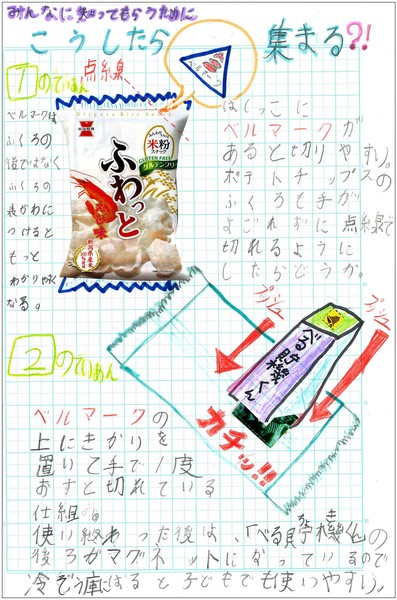 みんなに知ってもらうために
こうしたら 集まる?!
1のてい案
点線
ベルマーク
ベルマークは
ふくろの
後ではなく
ふくろの
表がわに
つけると
もっと
わかりやすく
なる。
岩塚製菓
米粉
スナック
GLUTEN FREE
グルテンフリー
ふわっと
えび味
新潟県産米
100%使用
はしっこに
ベルマークが
あると切りやすい。
ポテトチップスの
ふくろも手が
よごれずに点線で
切れるように
したらどうか。
プッシュ
プッシュ
べる貯機くん
カチッ!!
2のていあん
ベルマークの
上にきかいを
置いて手で1度
おすと切れている
仕組。
使い終わった後は、「べる貯機くんの
後ろがマグネットになっているので
冷ぞう庫にはると子どもでも使いやすい。